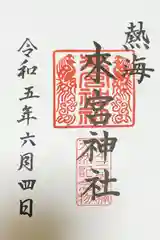 熱海
來宮神社
令和五年六月四日